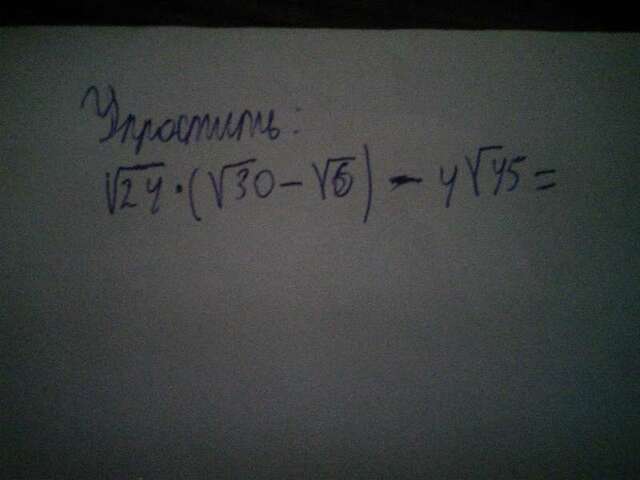 Упростить:
√24·(√30-√6)-4√45=